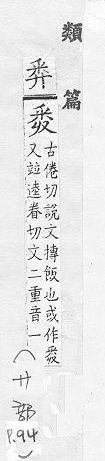 類篇
𢍏
古倦切說文摶飯也或作
又竝逵眷切文二重音一
(廾部
P.94)